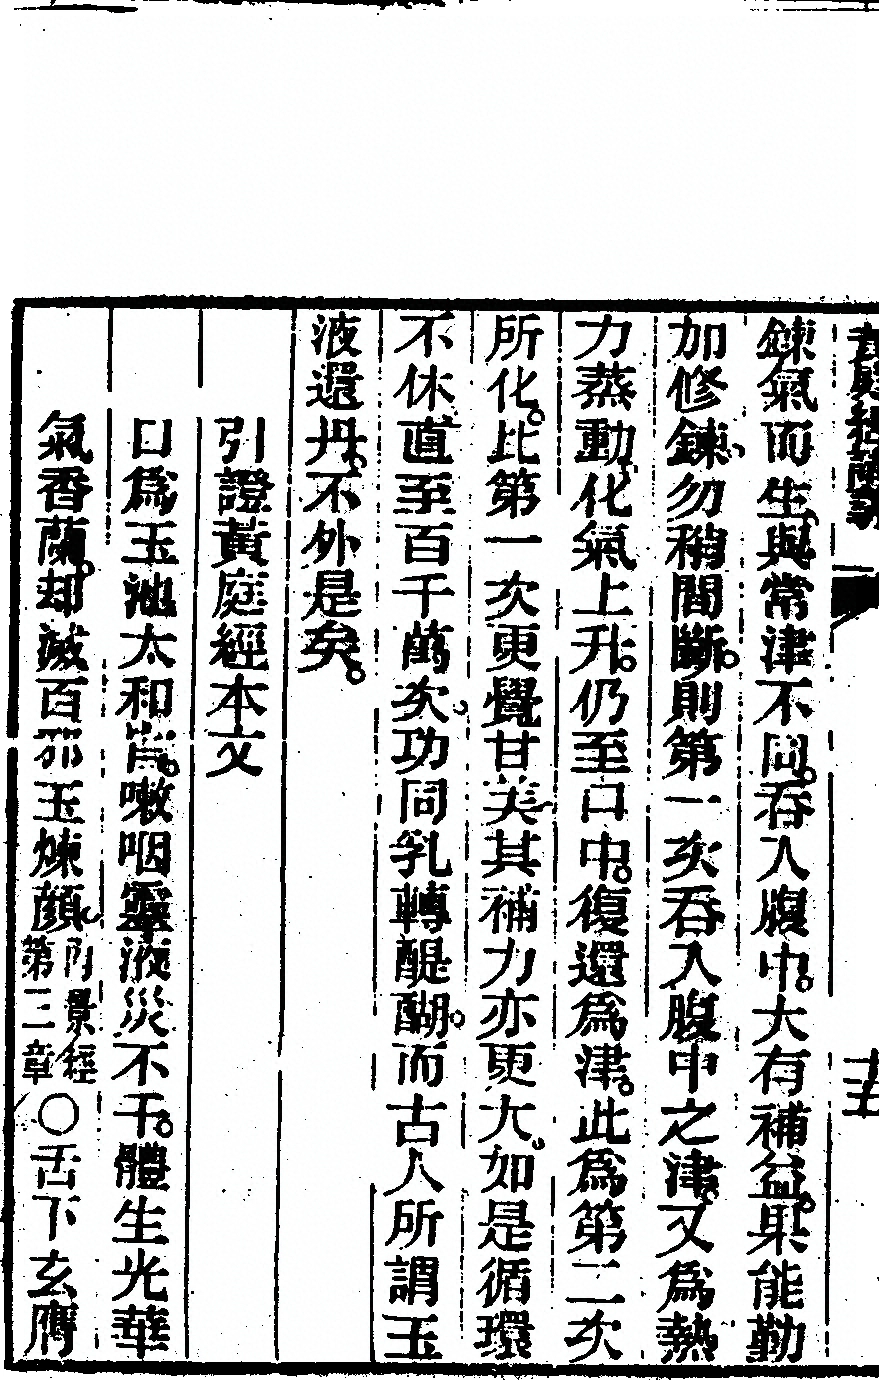 鍊氣而生、與常津不同。吞入腹中。大有補益。果能勤
加修鍊、勿稍間斷。則第一次吞入腹中之津。又爲熱
力蒸動、化氣上升。仍至口中。復還爲津。此爲第二次
所化。比第一次更覺甘美、其補力亦更大。如是循環
不休、直至百千萬次、功同乳轉醍醐。而古人所謂玉
液還丹。不外是矣。
引證黃庭經本文
口爲玉池太和官。嗽咽靈液災不干。體生光華
氣香蘭。却滅百邪玉煉顏、內景經第三章〇舌下玄膺